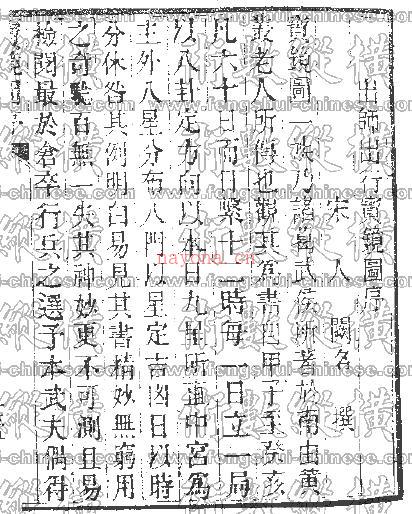 出師出行寳鏡圖序
宋人闕名撰
寳鏡圖一帙乃諸葛武侯所著於南由黃
叢老人所傳也觀其為書也甲子至癸亥
凡六十日而日繫十二時每一日立一局
以八卦定方向以本日九星所直中宮為
主外八星分布八門以星定吉凶日以時
分休咎其例明白易見其書精妙無窮用
之奇驗百無一失其神妙更不可測且易
檢閱最於倉卒行兵之選予本武夫偶得
nayona.cn
fengshui-chinese.com
縱橫